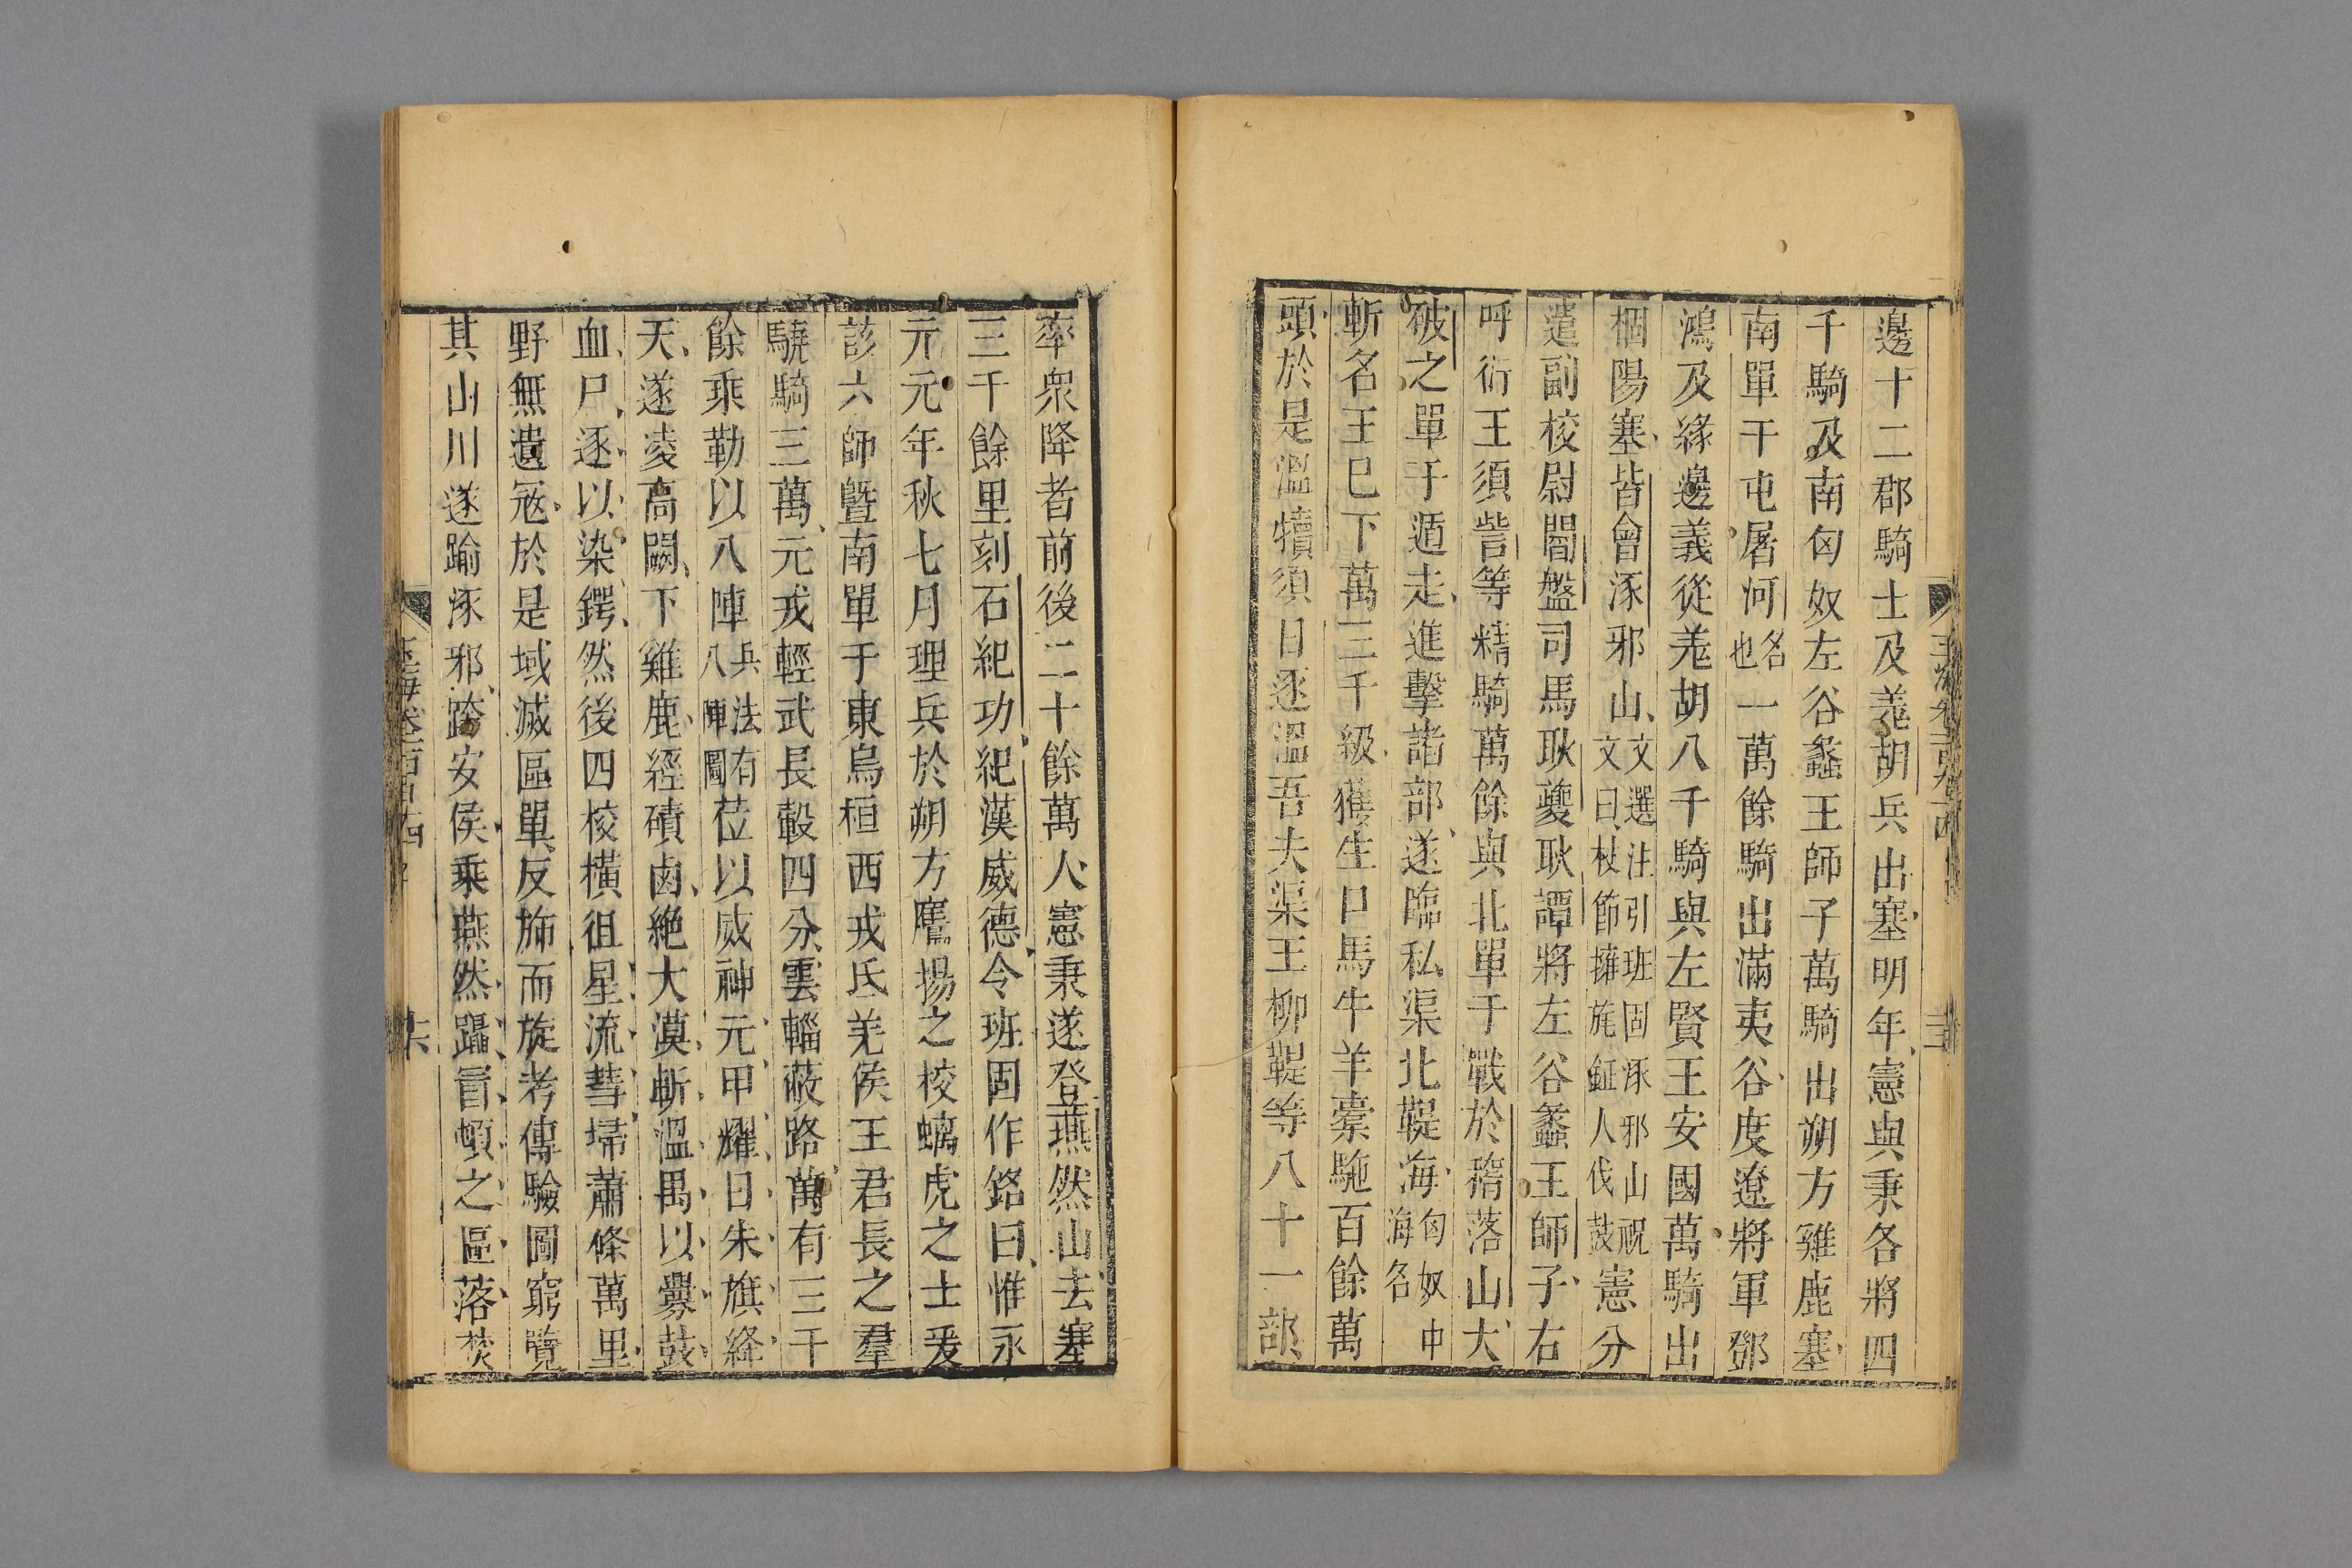 邊十二郡騎士及羗胡兵出塞明年憲與秉各將四
千騎及南匈奴左谷蠡王師子萬騎出朔方雞鹿塞
南單于屯屠河名也一萬餘騎出滿夷谷度遼將軍鄧
鴻及緣邊義從羗胡八千騎與左賢王安國萬騎出
稒陽塞皆會涿邪山文選注引班固涿邪山祝文曰杖節擁旄鉦人伐鼓憲分
遣副校尉閻盤司馬耿夔耿譚將左谷蠡王師子右
呼衍王須訾等精騎萬餘與北單于戰於稽落山大
破之單于遁走進擊諸部遂臨私渠北鞮海匈奴中海名
斬名王巳下萬三千級獲生口馬牛羊橐駞百餘萬
頭於是溫犢須日逐溫吾夫渠王柳鞮等八十一部
率衆降者前後二十餘萬人憲秉遂登燕然山去塞
三千餘里刻石紀功紀漢威德令班固作銘曰惟永
元元年秋七月理兵於朔方鷹揚之校螭虎之士爰
該六師曁南單于東烏桓西戎氐羌侯王君長之羣
驍騎三萬元戎輕武長轂四分雲輜蔽路萬有三千
餘乘勒以八陣兵法有八陣圖莅以威神元甲耀日朱旗絳
天遂凌高闕下雞鹿經磧鹵絶大漠斬溫禺以釁鼓
血尸逐以染鍔然後四校橫徂星流彗埽蕭條萬里
野無遺宼於是域滅區單反旆而旋考傳驗圖窮覽
其山川遂踰涿邪跨安侯乘燕然躡冒頓之區落焚